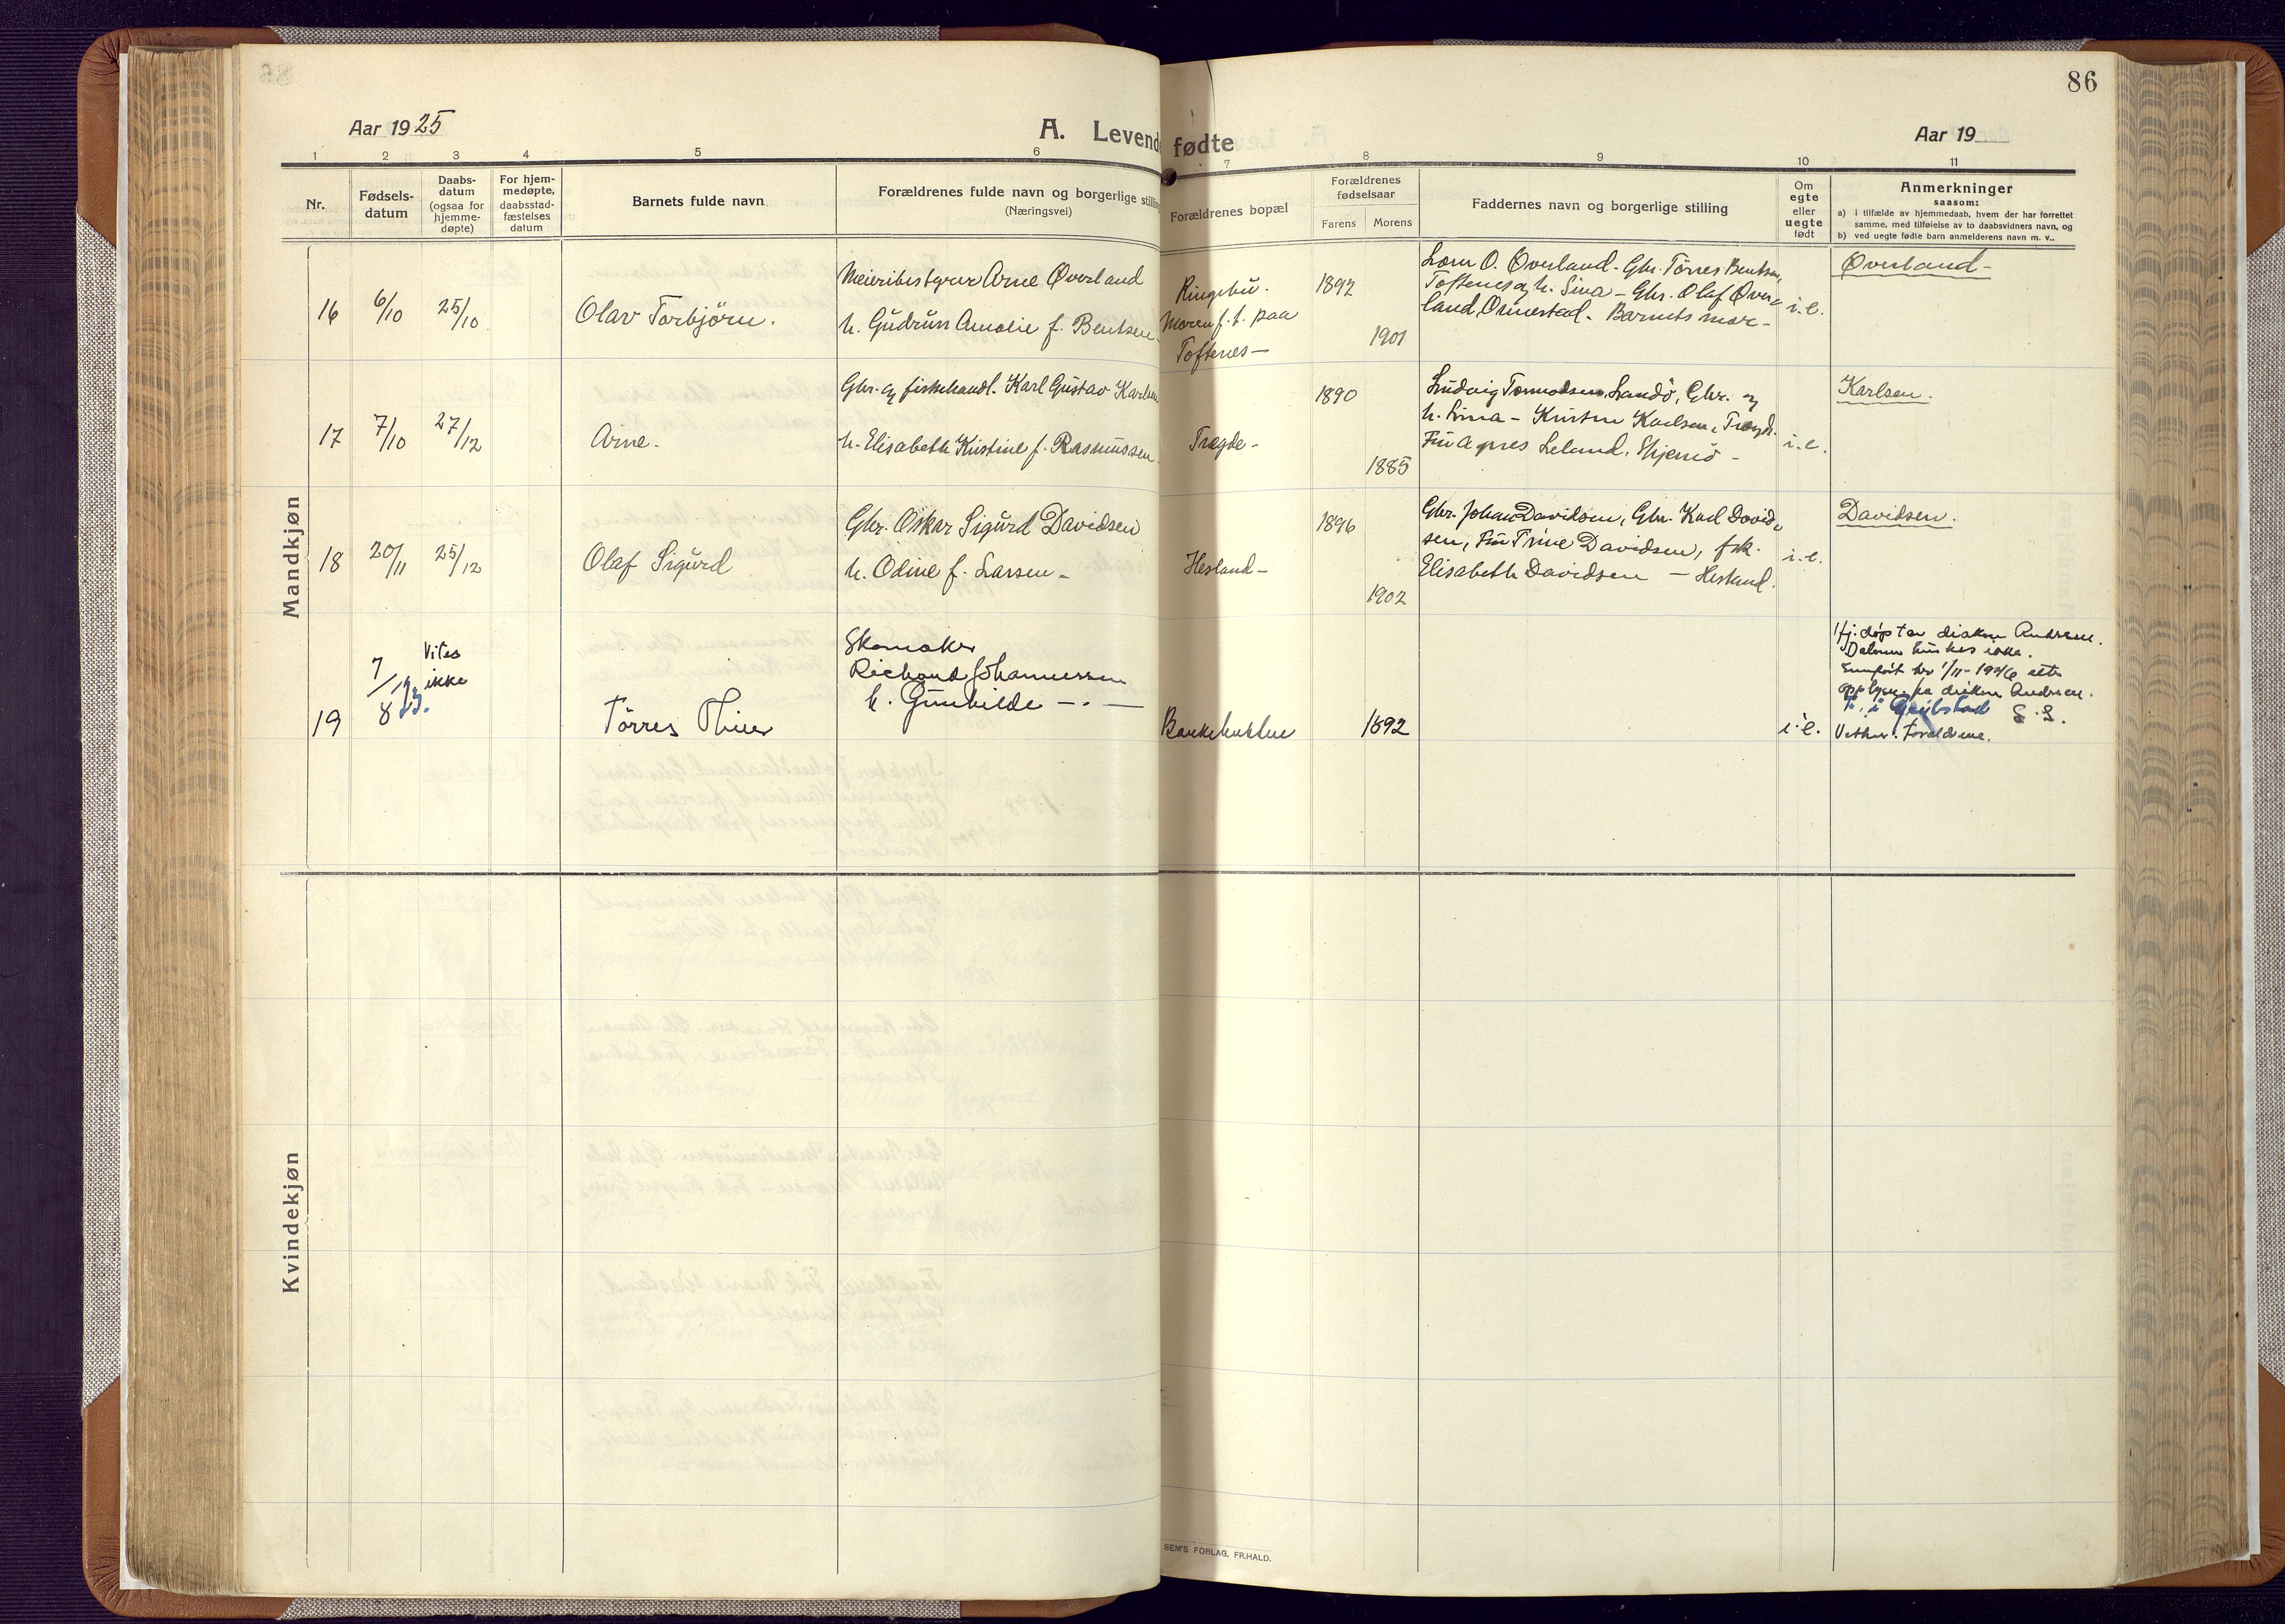 86
Aar 1925
A. Levende
fødte
Aar 19
1 2 3 4 5 6 7 8 9 10 11
Nr.
Fødsels-
datum
Daabs-
datum
(ogsaa for
hjemme-
døpte)
For hjem-
medøpte,
daabsstad-
fæstelses
datum
Barnets fulde navn
Forældrenes fulde navn og borgerlige stilling
(Næringsvei)
Forældrenes bopæl
Forældrenes
fødselsaar
Farens
Morens
Faddernes navn og borgerlige stilling
Om
egte
eller
uegte
født
Anmerkninger
saasom:
a) i tilfælde av hjemmedaab, hvem der har forrettet
samme, med tilføielse av to daabsvidners navn, og
b) ved uegte fødte barn anmelderens navn m. v..
Mandkjøn
16
6/10
25/10
Olav Torbjörn.
Meieribestyrer Arne Øverland
h. Gudrun Amalie f. Bentsen
Ringebu.
Moren f. t. paa
Toftenes—
1892
1901
Lærer O. Øverland. Gbr. Törres Bentsen,
Toftenes og h. Sina — Gbr. Olaf Øver-
land, Barnets mor—
i.e.
Øverland—
17
7/10
27/12
Arne.
Gbr. og fiskehandl. Karl Gustav Karlsen
h. Elisabeth Kristine f. Rasmussen
Trægde—
1890
1885
Ludvig Tormodsen, Landö, Gbr. og
h. — Karlsen, Trægd.
Fru Agnes Leland, Skjernö—
i.e.
Karlsen.
18
20/11
25/12
Olaf Sigurd
Gbr. Oskar Sigurd Davidsen
h. Odine f. Larsen—
Hesland—
1896
1902
Gbr. Johan Davidsen, Gbr. Karl David-
sen, Fru Trine Davidsen, frk.
Elisabeth Davidsen — Hesland.
i.e.
Davidsen.
19
7/8 23.
Vites
ikke
Törres
Skomaker
Richard Johannessen
h. Gunhilde —.—
1892
i.e.
Hj. døpt av diakon Andresen.
Datum huskes ikke.
1/11-1946 efter
diakon Andresen.
F. i Gribstad S.S.
Vidner: Foreldrene.
Kvindekjøn
SEM'S FORLAG, FR.HALD.